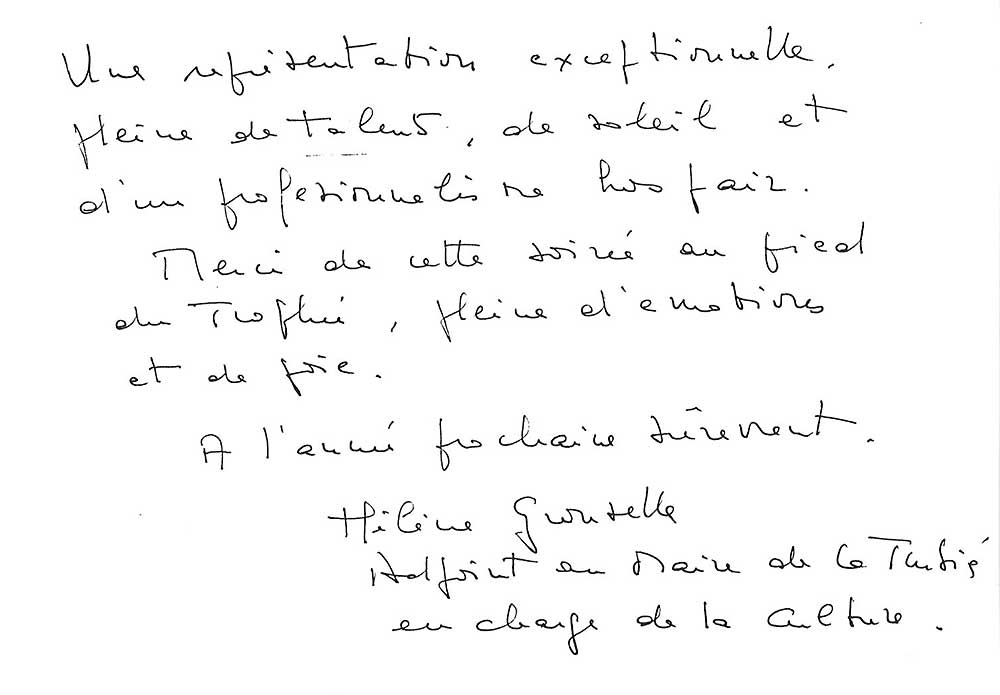 Une représentation exceptionnelle,
pleine de talent, de soleil et
d'un professionnalisme hors pair.
Merci de cette soirée au pied
du Trophée, pleine d'émotions
et de joie.
A l'année prochaine sûrement.
Hélène
Adjoint au Maire de La Turbie
en charge de la Culture.